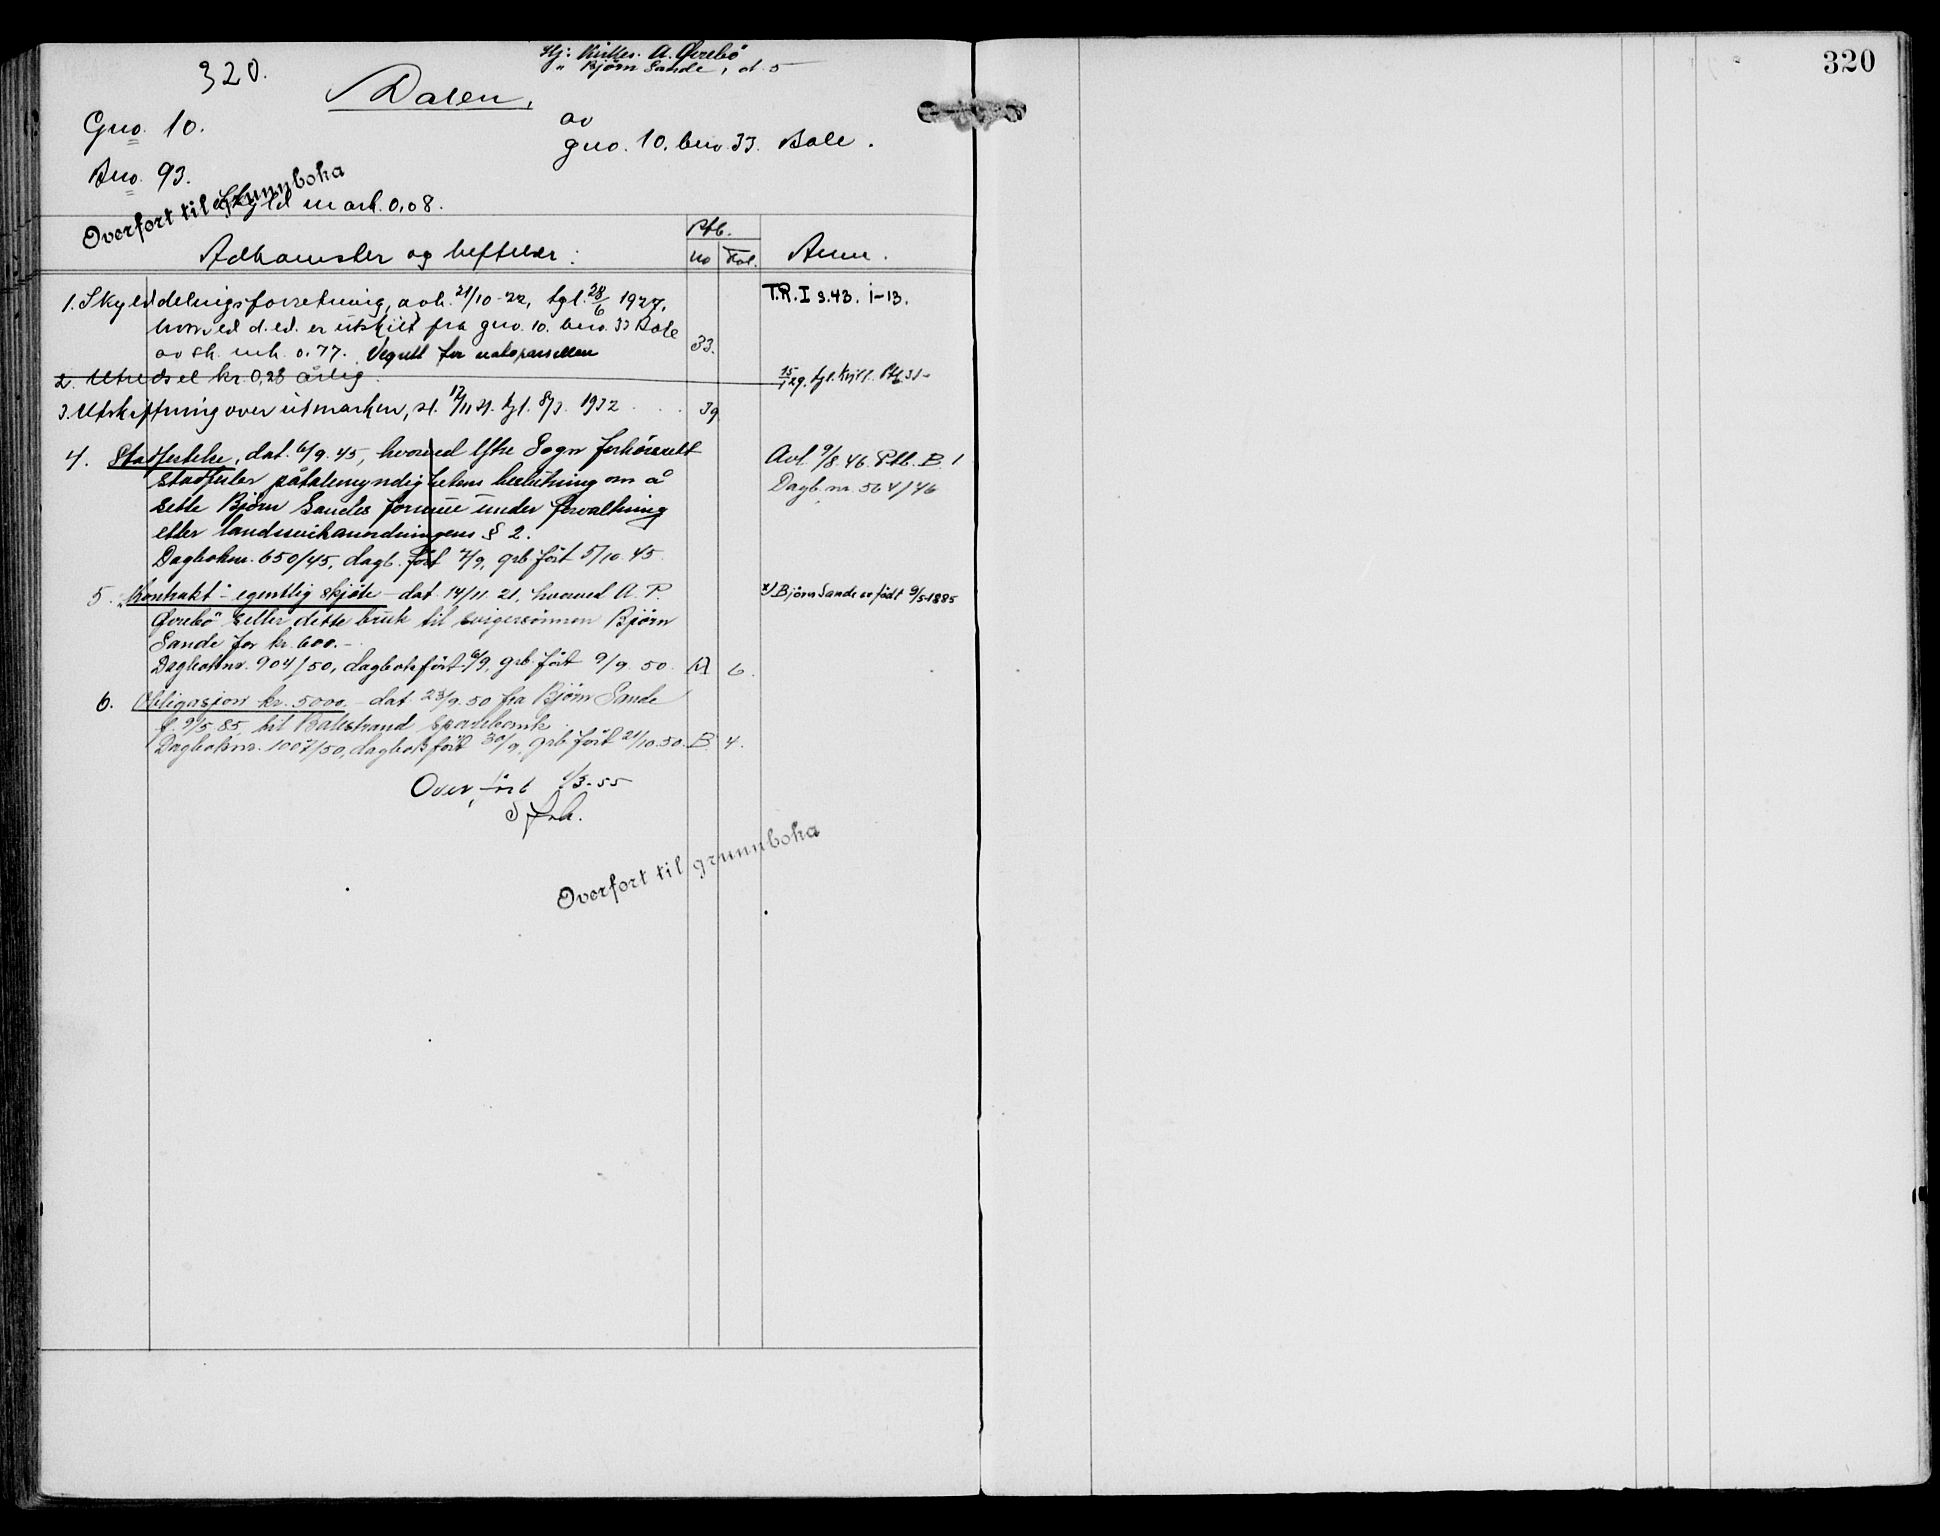 320.
Hj: A. Överebö
" Björn Sande, d. 5
Dalen.
Gno. 10.
av
gno. 10. bno. 33. Bale.
Bno. 93.
Overført til grunnboka
Skyld mark. 0,08.
Adkomster og heftelser:
Ptb.
No Fol.
Anm.
1. Skylddelingsforretning, avh. 21/10-22, tgl. 28/6 1927,
hvorved d. ed. er utskilt fra gno. 10. bno. 33 Bale
av sk. mk. 0.77. Vegrett for
33.
T.R. I s. 43. i-13.
2. Utredsel kr 0,28 årlig.
15/1 29. tgl. Ptb 31-
3. Utskiftning over utmarken, sl. 12/11 31. tgl. 8/3. 1932
39
4. Stadfestelse, dat. 6/9. 45, hvorved Ytre Sogn forhörsrett
stadfester påtalemyndighetens beslutning om å
sette Björn Sandes formue under forvaltning
etter landssvikanordningens § 2.
Dagboknr. 650/45, dagb. fört 7/9, grb fört 5/10 45
Avl. 9/8. 46. Ptb. B. 1
Dagb. nr. 564/46
5. "Kontrakt" - egentlig skjöte - dat 14/11. 21, hvorved A. P.
Överebö selter dette bruk til svigersönnen Björn
Sande for kr. 600.-
Dagboknr. 904/50, dagbokfört 6/9, grb. fört 9/9. 50. A 6.
x) Björn Sande er født 9/5-1885
6. Obligasjon kr. 5000.- dat 23/9. 50 fra Björn Sande
f. 9/5. 85, til Balestrand sparebank.
Dagboknr. 1007/50, dagbokfört 30/9, grb fört 21/10. 50. B 4.
Overfört 1/3-55
Overført til grunnboka
320